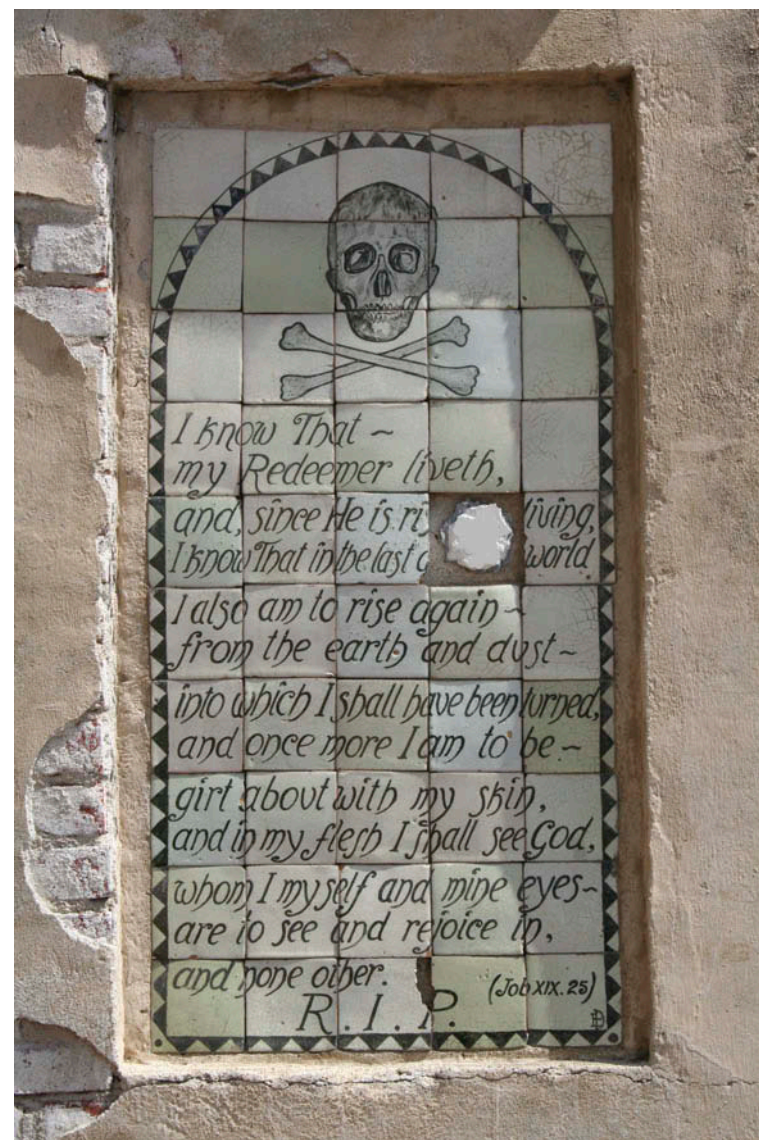 I know That ~
my Redeemer liveth,
and, since He is ri living,
I know That in the last world
I also am to rise again ~
from the earth and dust ~
into which I shall have been turned,
and once more I am to be ~
girt about with my skin,
and in my flesh I shall see God,
whom I myself and mine eyes ~
are to see and rejoice in,
and none other.
(Job XIX. 25)
R. I. P.